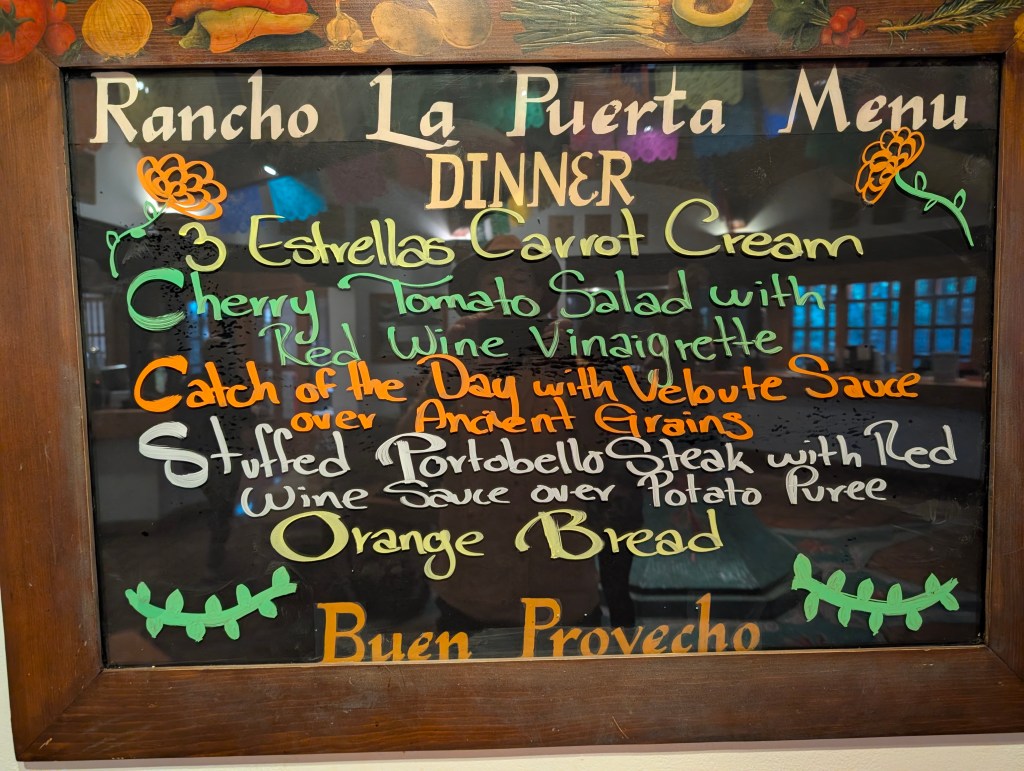 Rancho La Puerta Menu
DINNER
3 Estrellas Carrot Cream
Cherry Tomato Salad with
Red Wine Vinaigrette
Catch of the Day with Veloute Sauce
over Ancient Grains
Stuffed Portobello Steak with Red
Wine Sauce over Potato Puree
Orange Bread
Buen Provecho